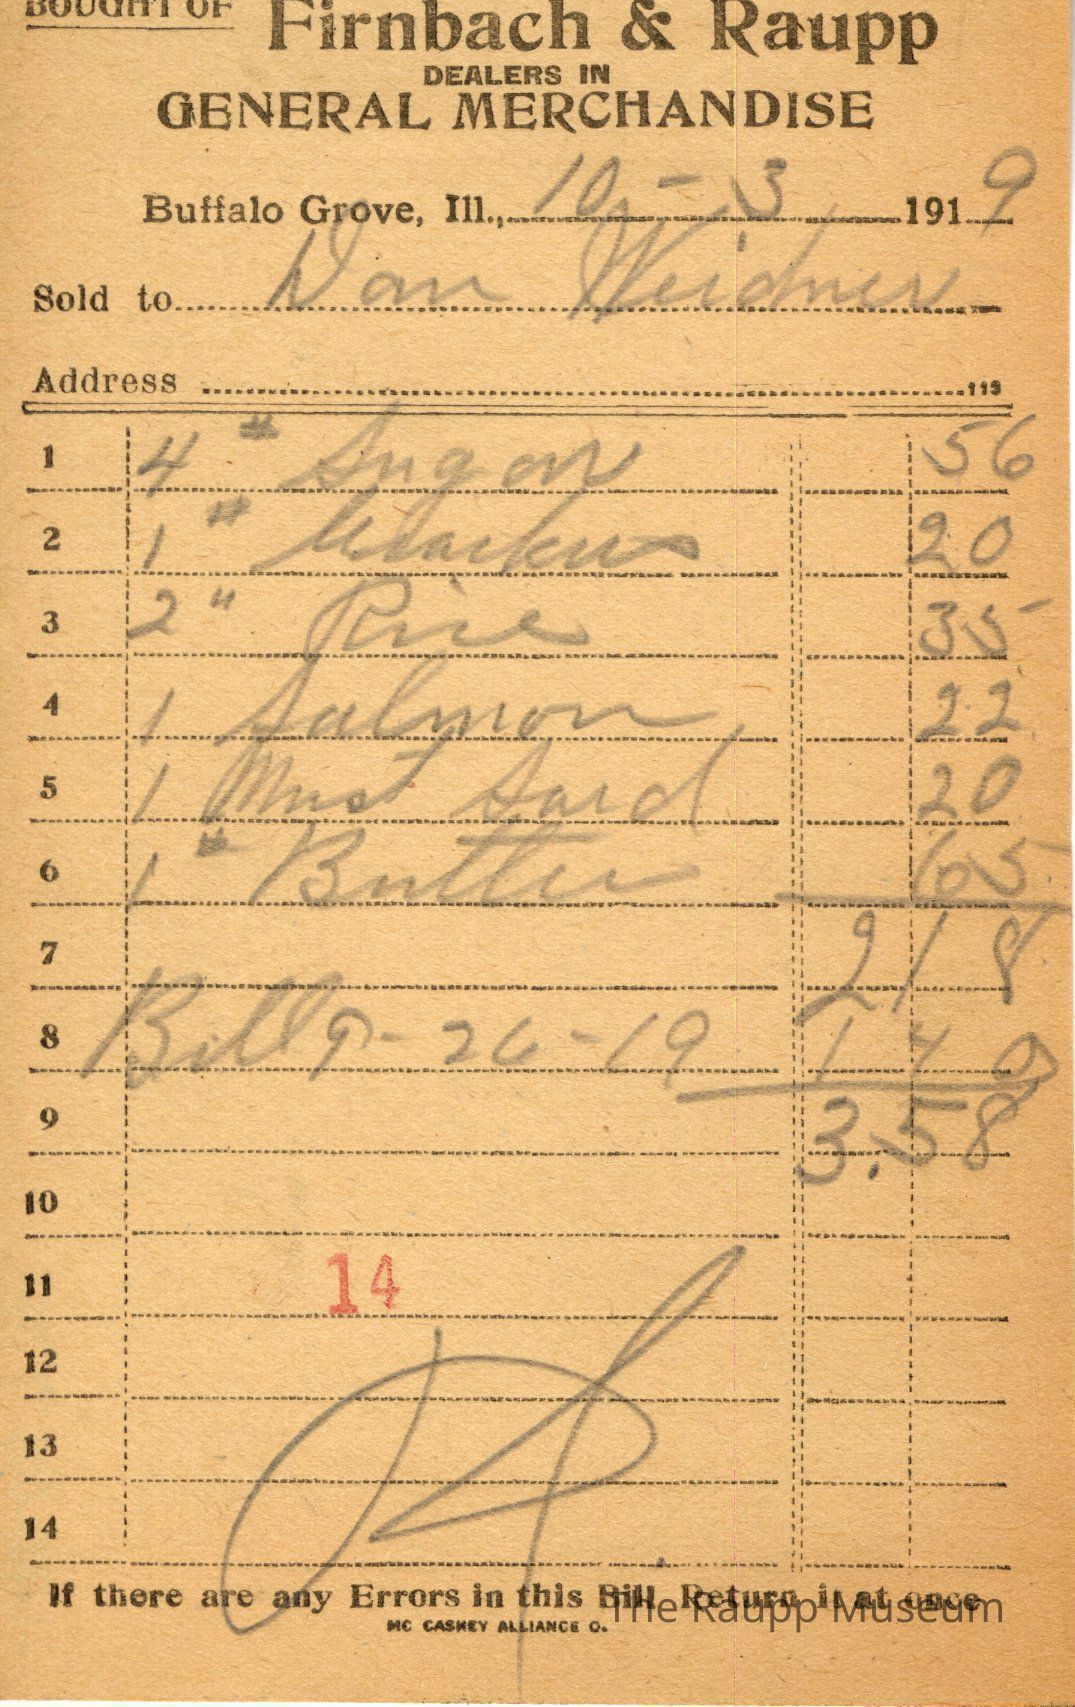 BOUGHT OF
Firnbach & Raupp
DEALERS IN
GENERAL MERCHANDISE
Buffalo Grove, Ill., 10 - 3 1919
Sold to Dan Weidner
Address 113
1 4 # Sugar 56
2 1 # Crackers 20
3 2 " Rice 35
4 1 Salmon 22
5 1 Must Sard 20
6 1 # Butter 65
7 2 18
8 Bill 9-26-19 1 40
9 3.58
10
11 14
12
13
14
If there are any Errors in this Bill, Return it at once
MC CASKEY ALLIANCE O.
The Raupp Museum